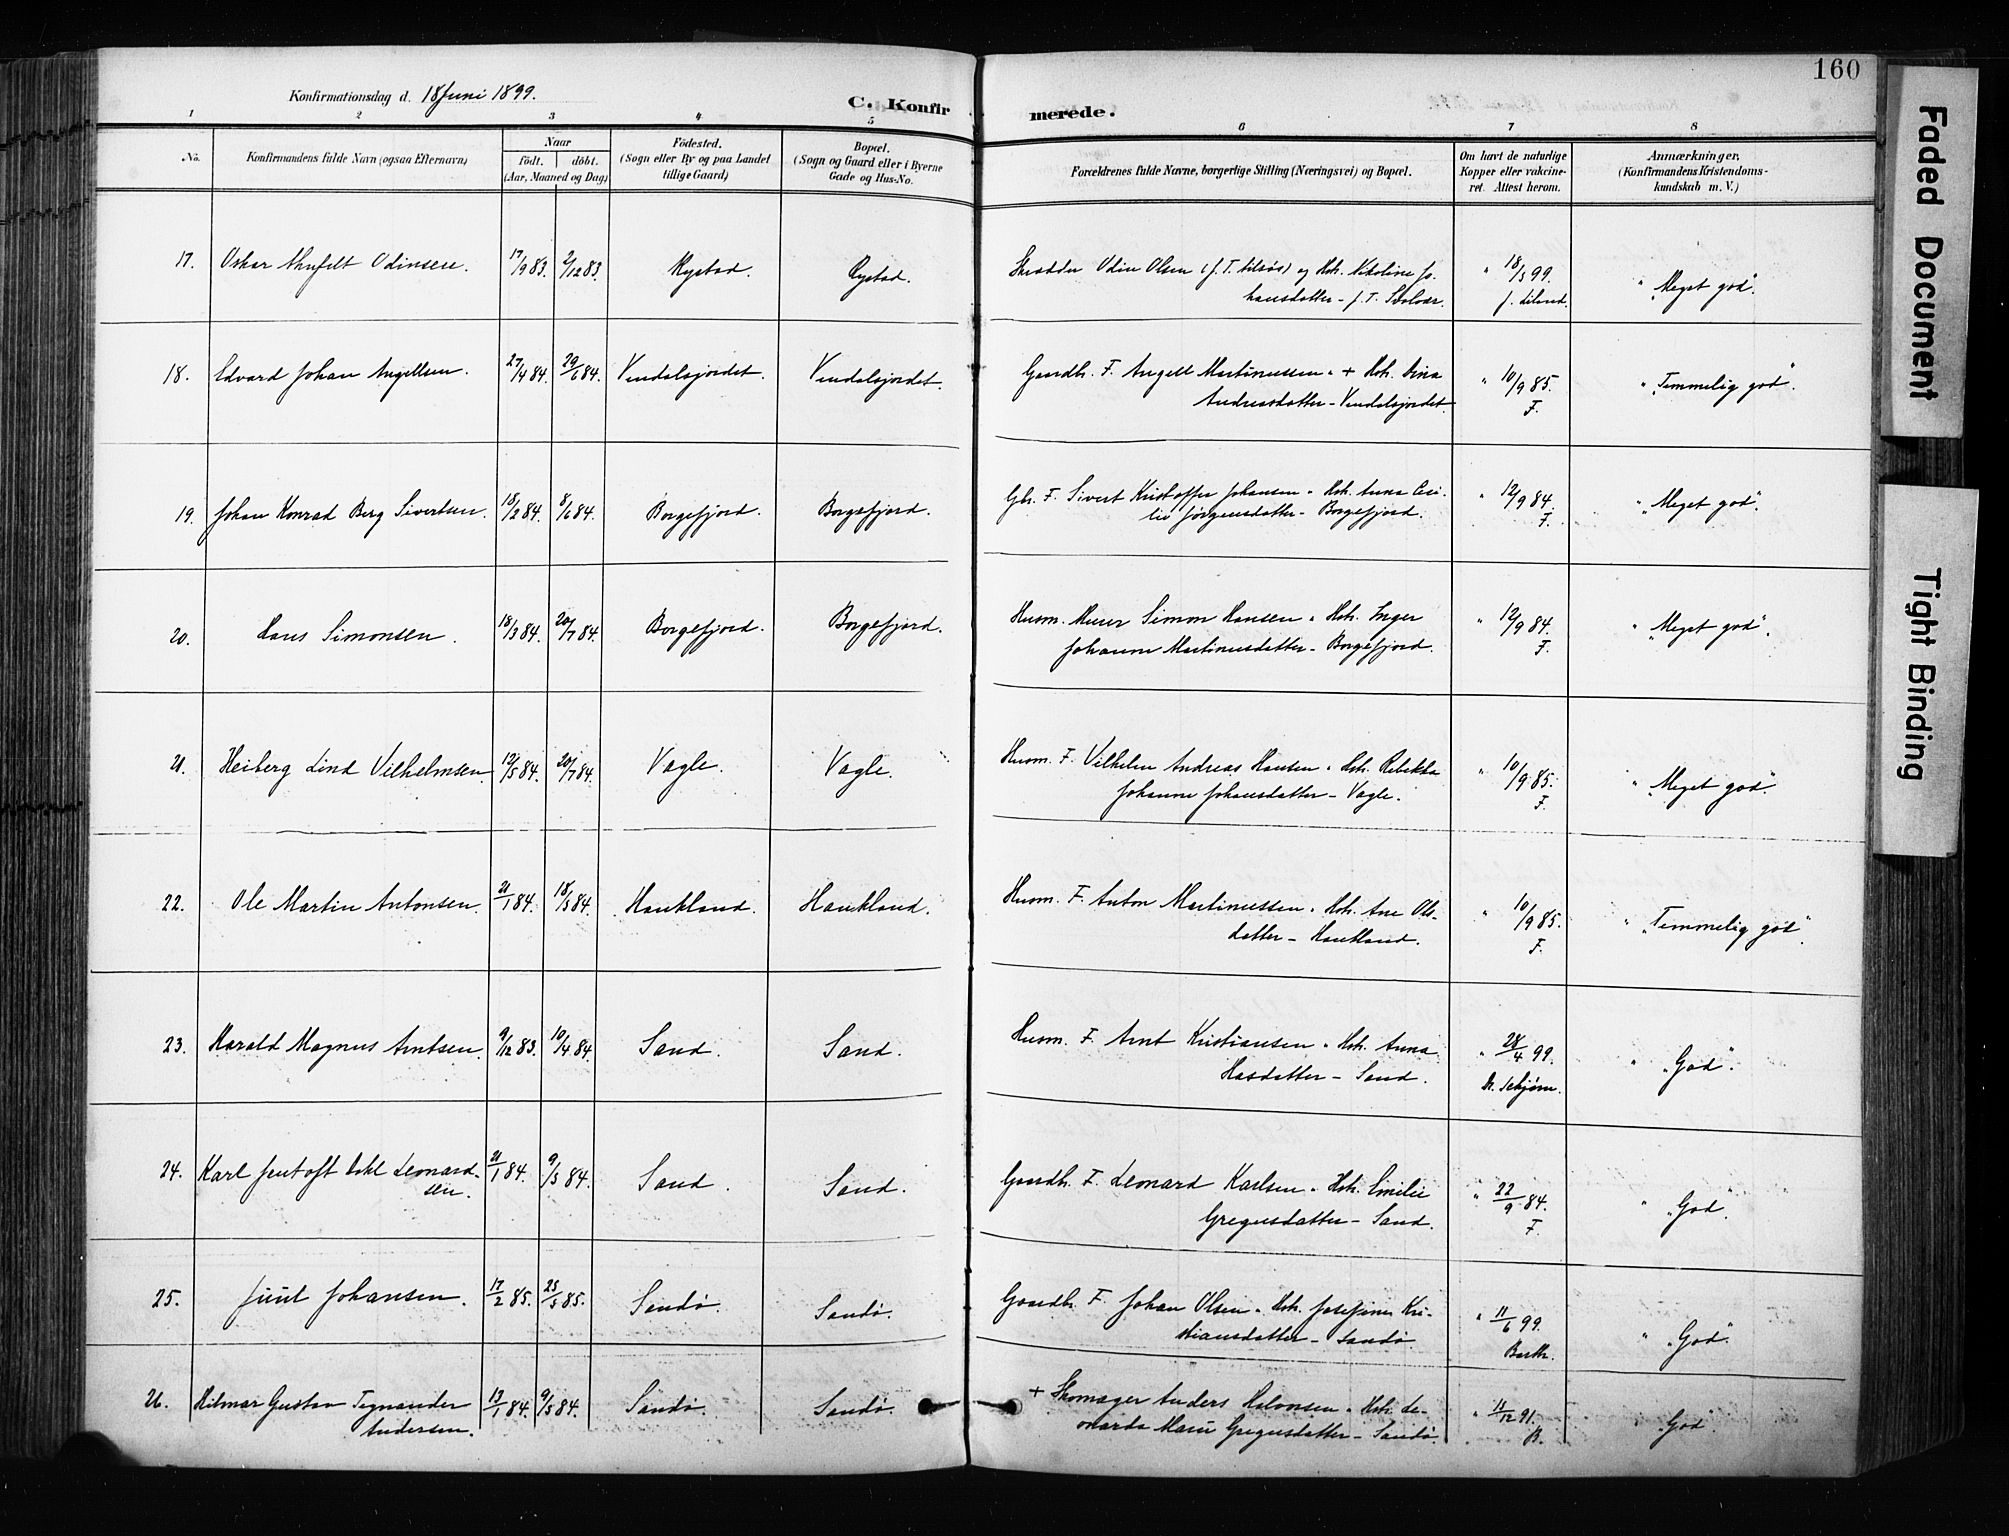 160
Konfirmationsdag d. 18 Juni 1899.
C. Konfirmerede.
1 2 3 4 5 6 7 8
No.
Konfirmandens fulde Navn (ogsaa Efternavn)
Naar
födt. döbt.
(Aar, Maaned og Dag)
Födested.
(Sogn eller By og paa Landet
tillige Gaard)
Bopæl.
(Sogn og Gaard eller i Byerne
Gade og Hus-No.
Forældrenes fulde Navne, borgerlige Stilling (Næringsvei) og Bopæl.
Om havt de naturlige
Kopper eller vakcine-
ret. Attest herom.
Anmærkninger,
(Konfirmandens Kristendoms-
kundskab m. V.)
17. Oskar Odinsen. 17/9 83. 2/12 83. Rystad. Rystad. Skrædder Odin Olsen og Hst. Nikoline Jo-
hansdatter - f. T. Svolvær. " 18/5 99. "Meget god".
18. Edvard Johan Angellsen. 27/4 84. 29/6 84. Vendalsjordet. Vendalsjordet. Gaardb. F. Angell Martinussen " + Hst. Dina
Andreasdatter - Vendalsjordet. " 10/9 85. F. "Temmelig god".
19. Johan Konrad Berg Sivertsen. 18/2 84. 8/6 84. Borgefjord. Borgefjord. Gbr. F. Sivert Kristoffer Johansen " Hst. Anna Ceci-
lie Jörgensdatter - Borgefjord. " 12/9 84. F. "Meget god".
20. Hans Simonsen. 18/3 84. 20/7 84. Borgefjord. Borgefjord. Husm. Murer Simon Hansen " Hst. Inger
Johanne Martinusdatter - Borgefjord. " 12/9 84. F. "Meget god".
21. Heiberg Lind Vilhelmsen 12/5 84. 20/7 84. Vagle. Vagle. Husm. F. Vilhelm Andreas Hansen " Hst. Rebekka
Johanne Johansdatter - Vagle. " 10/9 85. F. "Meget god".
22. Ole Martin Antonsen. 21/1 84. 18/5 84. Haukland. Haukland. Husm. F. Anton Martinussen " Hst. Ane Ols-
datter - Haukland. " 10/9 85. F. "Temmelig god".
23. Harald Magnus Arntsen. 9/12 83. 10/4 84. Sand. Sand. Husm. F. Arnt Kristiansen " Hst. Anna
Hasdatter - Sand. " 28/4 99. "God".
24. Karl Jentoft Leonard-
sen. 21/1 84. 9/3 84. Sand. Sand. Gaardb. F. Leonard Karlsen " Hst. Emilie
Gregusdatter - Sand. " 22/9 84. F. "God".
25. Juul Johansen. 17/2 85. 25/5 85. Sandö. Sandö. Gaardb. F. Johan Olsen " Hst. Josefine Kri-
stiansdatter - Sandö. " 11/6 99. Barth. "God".
26. Hilmar Gustav Tegnander
Andersen. 13/1 84. 9/3 84. Sandö. Sandö. + Skomager Anders Halvorsen " Hst. Le-
onarda Marie Gregusdatter - Sandö. " 13/12 91. B. "God".
Faded Document
Tight Binding